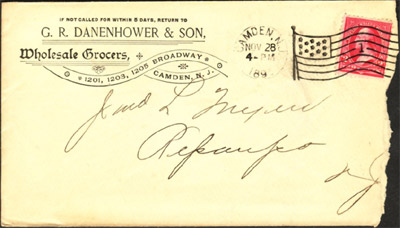 IF NOT CALLED FOR WITHIN 5 DAYS, RETURN TO
G. R. DANENHOWER & SON,
Wholesale Grocers,
1201, 1203, 1205 BROADWAY
CAMDEN, N. J.
CAMDEN, N.J.
NOV 28
4-PM
189
1
L
Repaupo
N J